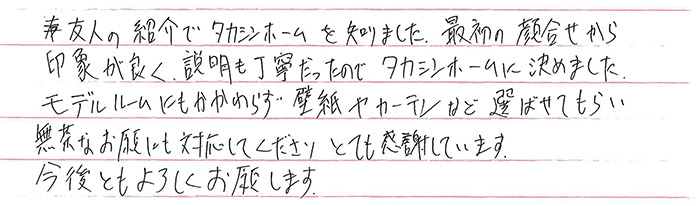 友人の紹介でタカシンホームを知りました。最初の顔合せから
印象が良く、説明も丁寧だったのでタカシンホームに決めました。
モデルルームにもかかわらず壁紙やカーテンなど選ばせてもらい
無茶なお願いにも対応してくださりとても感謝しています。
今後ともよろしくお願します。